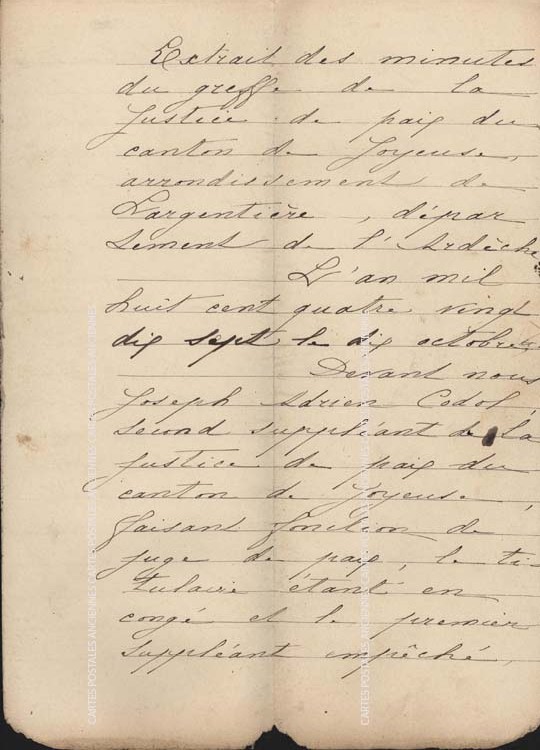 Extrait des minutes
du greffe de la
Justice de paix du
canton de Joyeuse,
arrondissement de
Largentière, dépar
tement de l'Ardèche
L'an mil
huit cent quatre vingt
dix sept le dix octobre
Devant nous
Joseph Adrien Codol,
second suppléant de la
justice de paix du
canton de Joyeuse,
faisant fonction de
juge de paix, le ti-
tulaire étant en
congé et le premier
suppléant empêché,
CARTES POSTALES ANCIENNES CARTES POSTALES ANCIENNES CARTES POSTALES ANCIENNES
CARTES POSTALES ANCIENNES CARTES POSTALES ANCIENNES CARTES POSTALES ANCIENNES